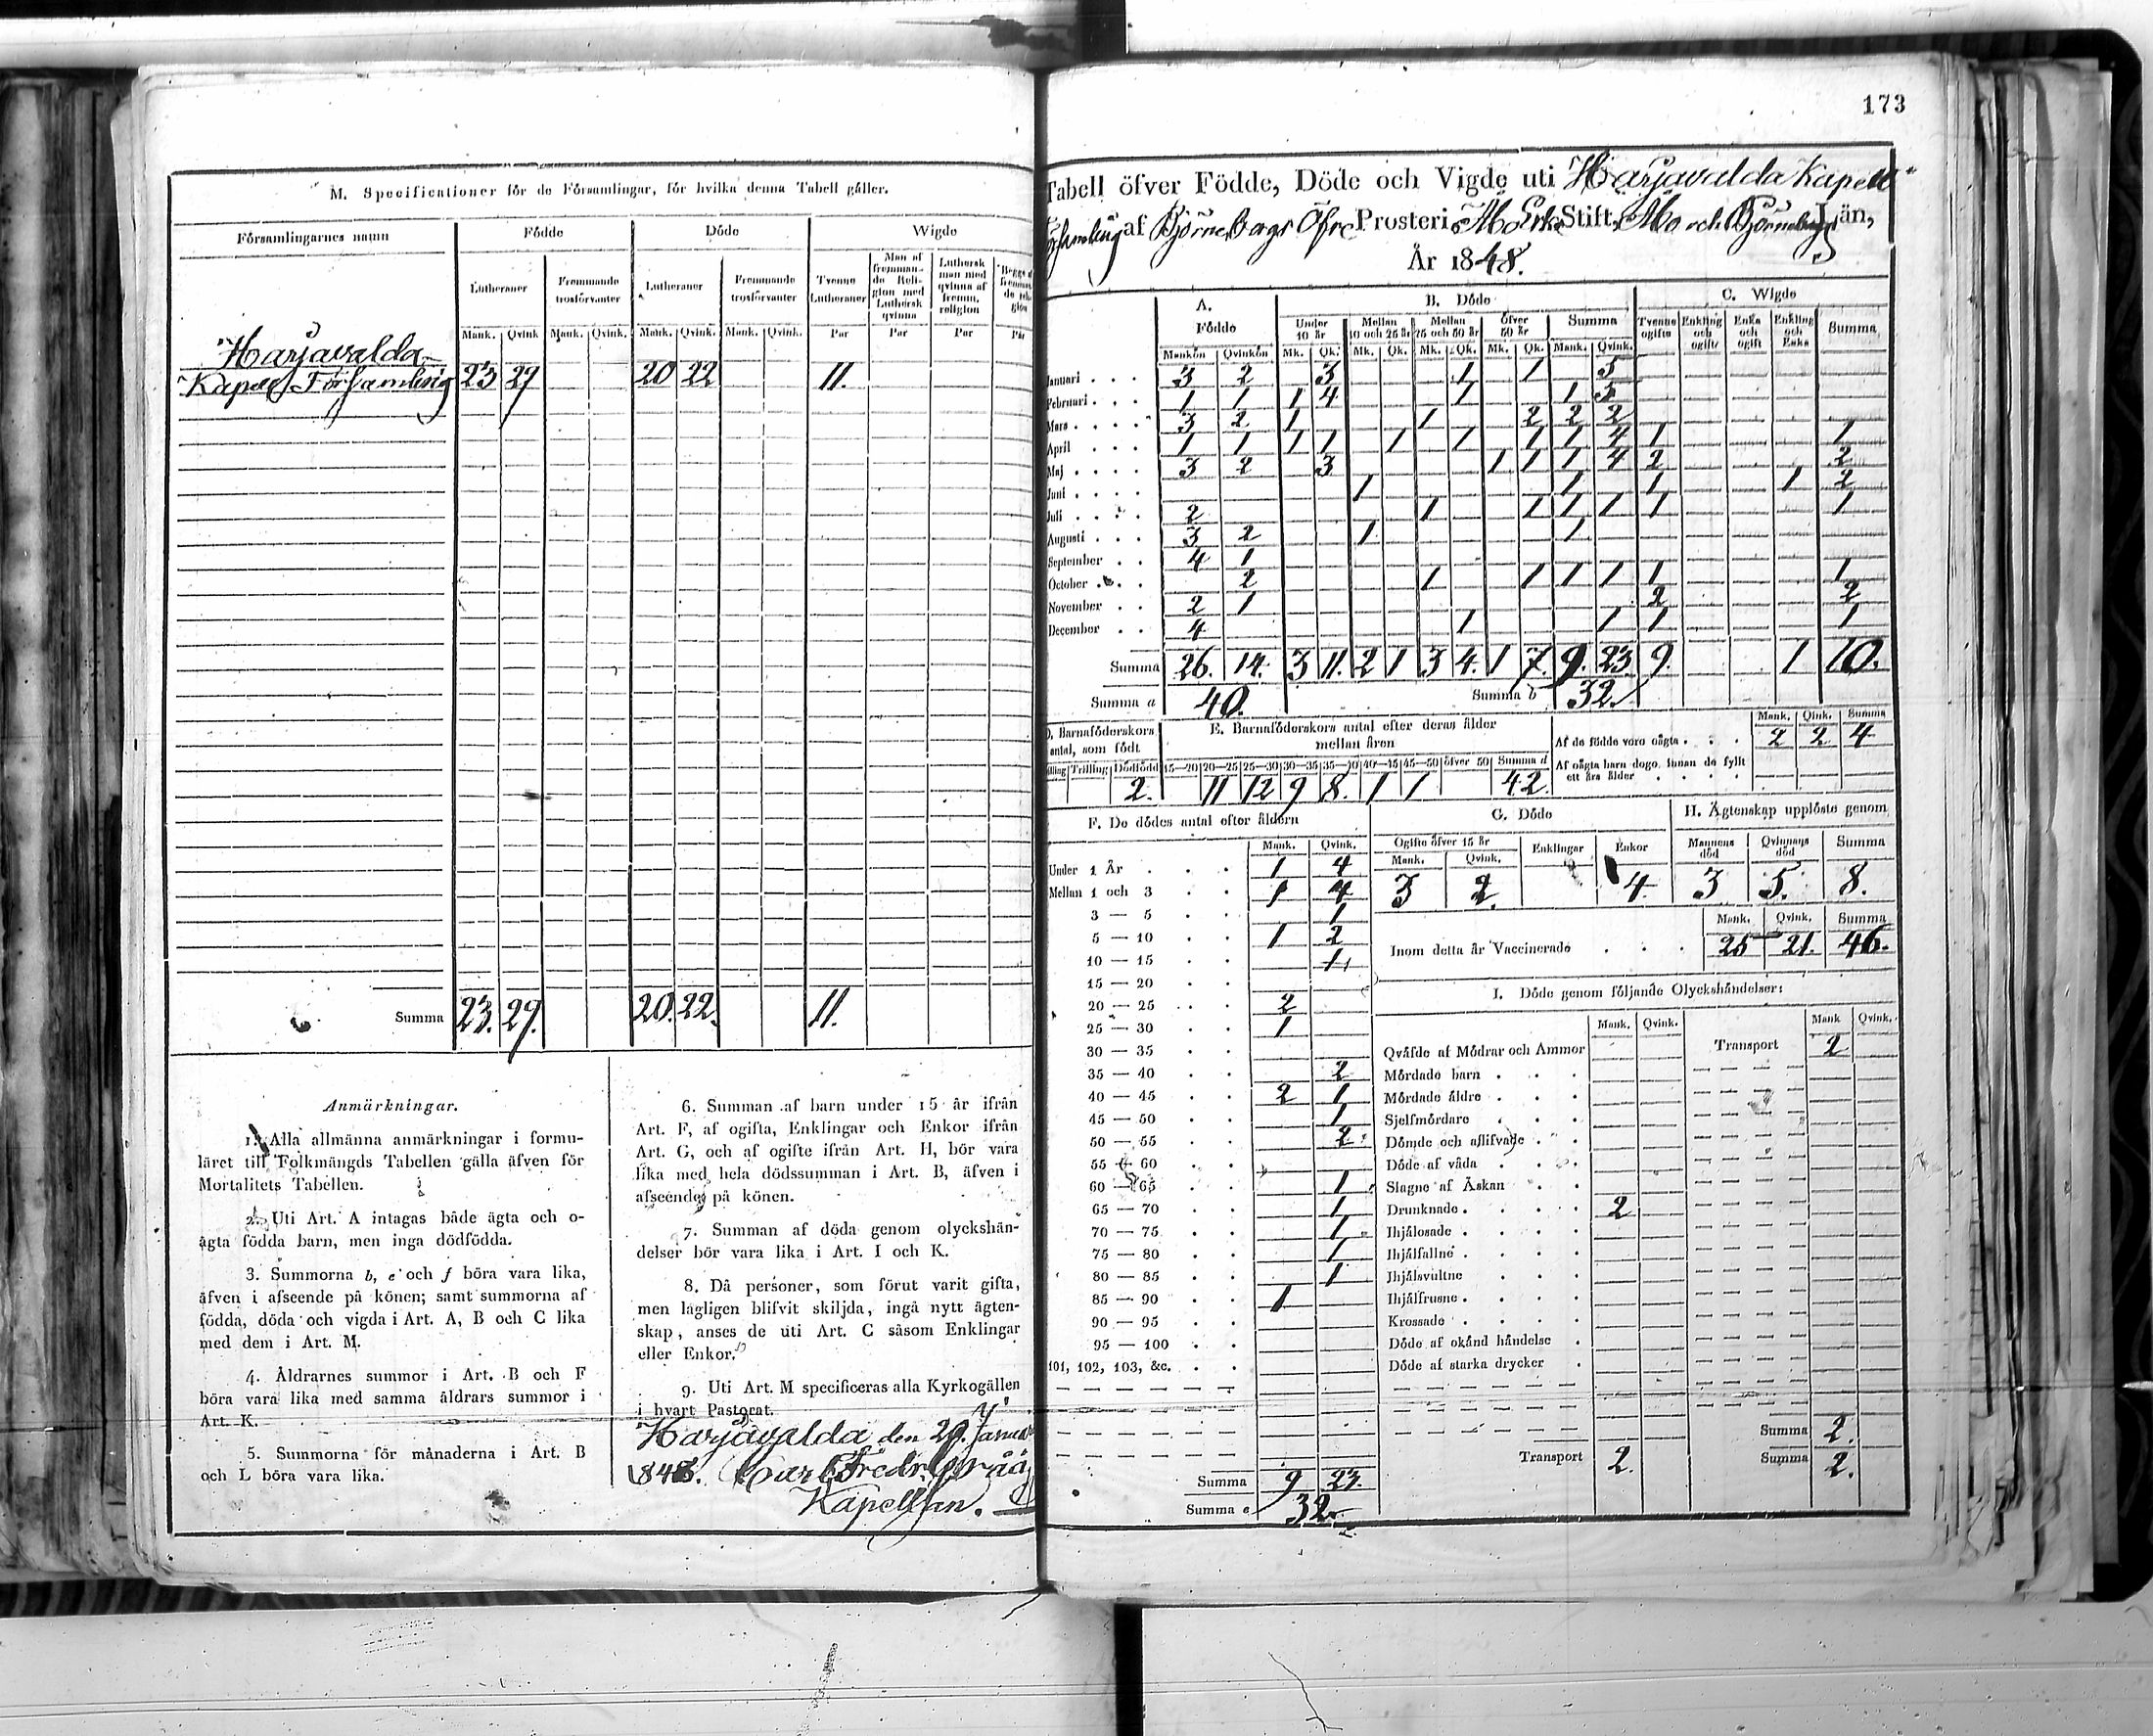 M. Specificationer för de Församlingar, för hvilka denna Tabell gäller.
Församlingarnes namn Födde Döde Wigde
Lutheraner Fremmande trosförvanter Lutheraner Fremmande trosförvanter Tvenne Lutheraner Man af fremmande Religion med Luthersk qvinna Luthersk man med qvinna af fremm. religion
Mank. Qvink Mank. Qvink. Mank. Qvink. Mank. Qvink. Par Par Par Par
Harjavalda
Kapell Församling 23 29 20 22 11.
Summa 23. 29. 20. 22. 11.
Anmärkningar.
1. Alla allmänna anmärkningar i formu-
läret till Folkmängds Tabellen gälla äfven för
Mortalitets Tabellen.
2. Uti Art. A intagas både ägta och o-
ägta födda barn, men inga dödfödda.
3. Summorna b, e och f böra vara lika,
äfven i afseende på könen; samt summorna af
födda, döda och vigda i Art. A, B och C lika
med dem i Art. M.
4. Åldrarnes summor i Art. B och F
böra vara lika med samma åldrars summor i
Art. K.
5. Summorna för månaderna i Art. B
och L böra vara lika.
6. Summan af barn under 15 år ifrån
Art. F, af ogifta, Enklingar och Enkor ifrån
Art. G, och af ogifte ifrån Art. H, bör vara
lika med hela dödssumman i Art. B, äfven i
afseende på könen.
7. Summan af döda genom olyckshän-
delser bör vara lika i Art. I och K.
8. Då personer, som förut varit gifta,
men lagligen blifvit skiljda, ingå nytt ägten-
skap, anses de uti Art. C såsom Enklingar
eller Enkor.
9. Uti Art. M specificeras alla Kyrkogällen
i hvart Pastorat.
Harjavalda den
Carl Fredr.
Kapellan.
173
Tabell öfver Födde, Döde och Vigde uti Harjavalda Kapell
Församling af Björneborgs Öfre Prosteri, Åbo Erke Stift, Åbo och Björneborgs Län,
År 1848.
A. Födde B. Döde C. Wigde
Under 10 år Mellan 10 och 25 år Mellan 25 och 50 år Öfver 50 år Summa Tvenne ogifte Enkling och ogift Enka och ogift Enkling och Enka Summa
Mankön Qvinkön Mk. Qk. Mk. Qk. Mk. Qk. Mk. Qk. Mank. Qvink.
Januari 3 2 3 1 1 5
Februari 1 1 1 4 1 1 5
Mars 3 2 1 1 2 2 2
April 1 1 1 1 1 1 1 1 4 1 1
Maj 3 2 3 1 1 1 4 2 2
Juni 1 1 1 1 2
Juli 2 1 1 1 1 1 1
Augusti 3 2 1 1
September 4 1
October 2 1 1 1 1 1 1
November 2 1 2 2
December 4 1 1 1 1
Summa 26. 14. 3 11. 2 1 3 4. 1 7. 9. 23 9. 1 10.
Summa a 40. Summa b 32.
D. Barnaföderskors antal, som födt
Trilling Dödfödd
2.
E. Barnaföderskors antal efter deras ålder
mellan åren
15—20 20—25 25—30 30—35 35—40 40—45 45—50 öfver 50 Summa d
11 12 9 8. 1 1 42
Mank. Qink. Summa
Af de födde voro oägta 2 2 4
Af oägta barn dogo innan de fyllt
ett års ålder
F. De dödes antal efter åldern
Mank. Qvink.
Under 1 År 1 4
Mellan 1 och 3 1 4
3 — 5 1
5 — 10 1 2
10 — 15 1
15 — 20
20 — 25 2
25 — 30 1
30 — 35
35 — 40 2
40 — 45 2 1
45 — 50 1
50 — 55 2
55 — 60
60 — 65 1
65 — 70 1
70 — 75 1
75 — 80 1
80 — 85 1
85 — 90 1
90 — 95
95 — 100
101, 102, 103, &c.
Summa 9 23.
Summa e 32.
G. Döde
Ogifte öfver 15 år Enklingar Enkor
Mank. Qvink.
3 2. 4
H. Ägtenskap upplöste genom
Mannens död Qvinnans död Summa
3 5. 8.
Mank. Qvink. Summa
Inom detta år Vaccinerade 25 21. 46.
I. Döde genom följande Olyckshändelser:
Mank. Qvink. Mank Qvink.
Transport 2
Qväfde af Mödrar och Ammor
Mördade barn
Mördade äldre
Sjelfmördare
Dömde och aflifvade
Döde af våda
Slagne af Åskan
Drunknade 2
Ihjälosade
Ihjälfallne
Ihjälsvultne
Ihjälfrusne
Krossade
Döde af okänd händelse
Döde af starka drycker
Summa 2.
Transport 2. Summa 2.